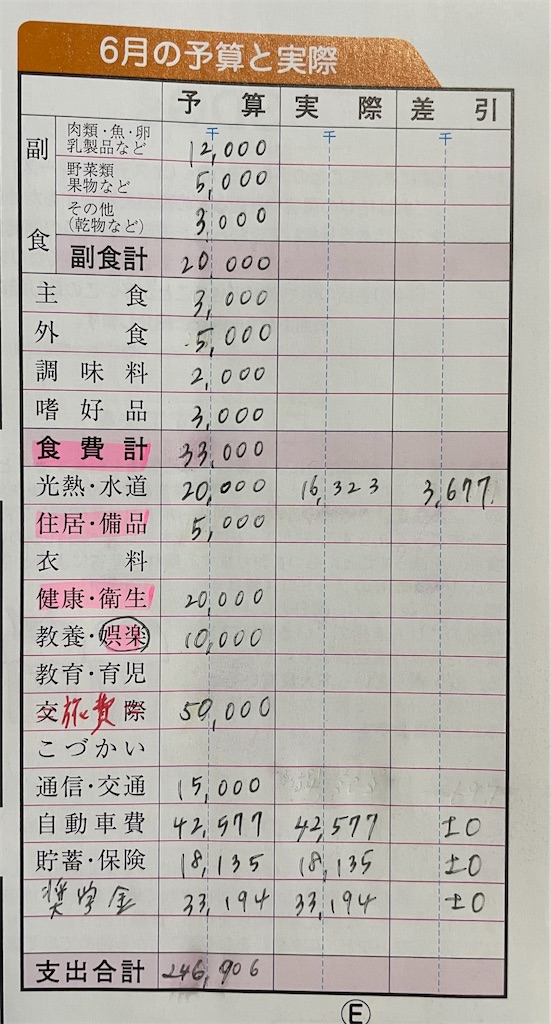 6月の予算と実際
予算 実際 差引
千 千 千
副食
肉類・魚・卵
乳製品など 12,000
野菜類
果物など 5,000
その他
(乾物など) 3,000
副食計 20,000
主食 3,000
外食 5,000
調味料 2,000
嗜好品 3,000
食費計 33,000
光熱・水道 20,000 16,323 3,677
住居・備品 5,000
衣料
健康・衛生 20,000
教養・娯楽 10,000
教育・育児
交際 旅費 50,000
こづかい
通信・交通 15,000
自動車費 42,577 42,577 ±0
貯蓄・保険 18,135 18,135 ±0
奨学金 33,194 33,194 ±0
支出合計 246,906
E